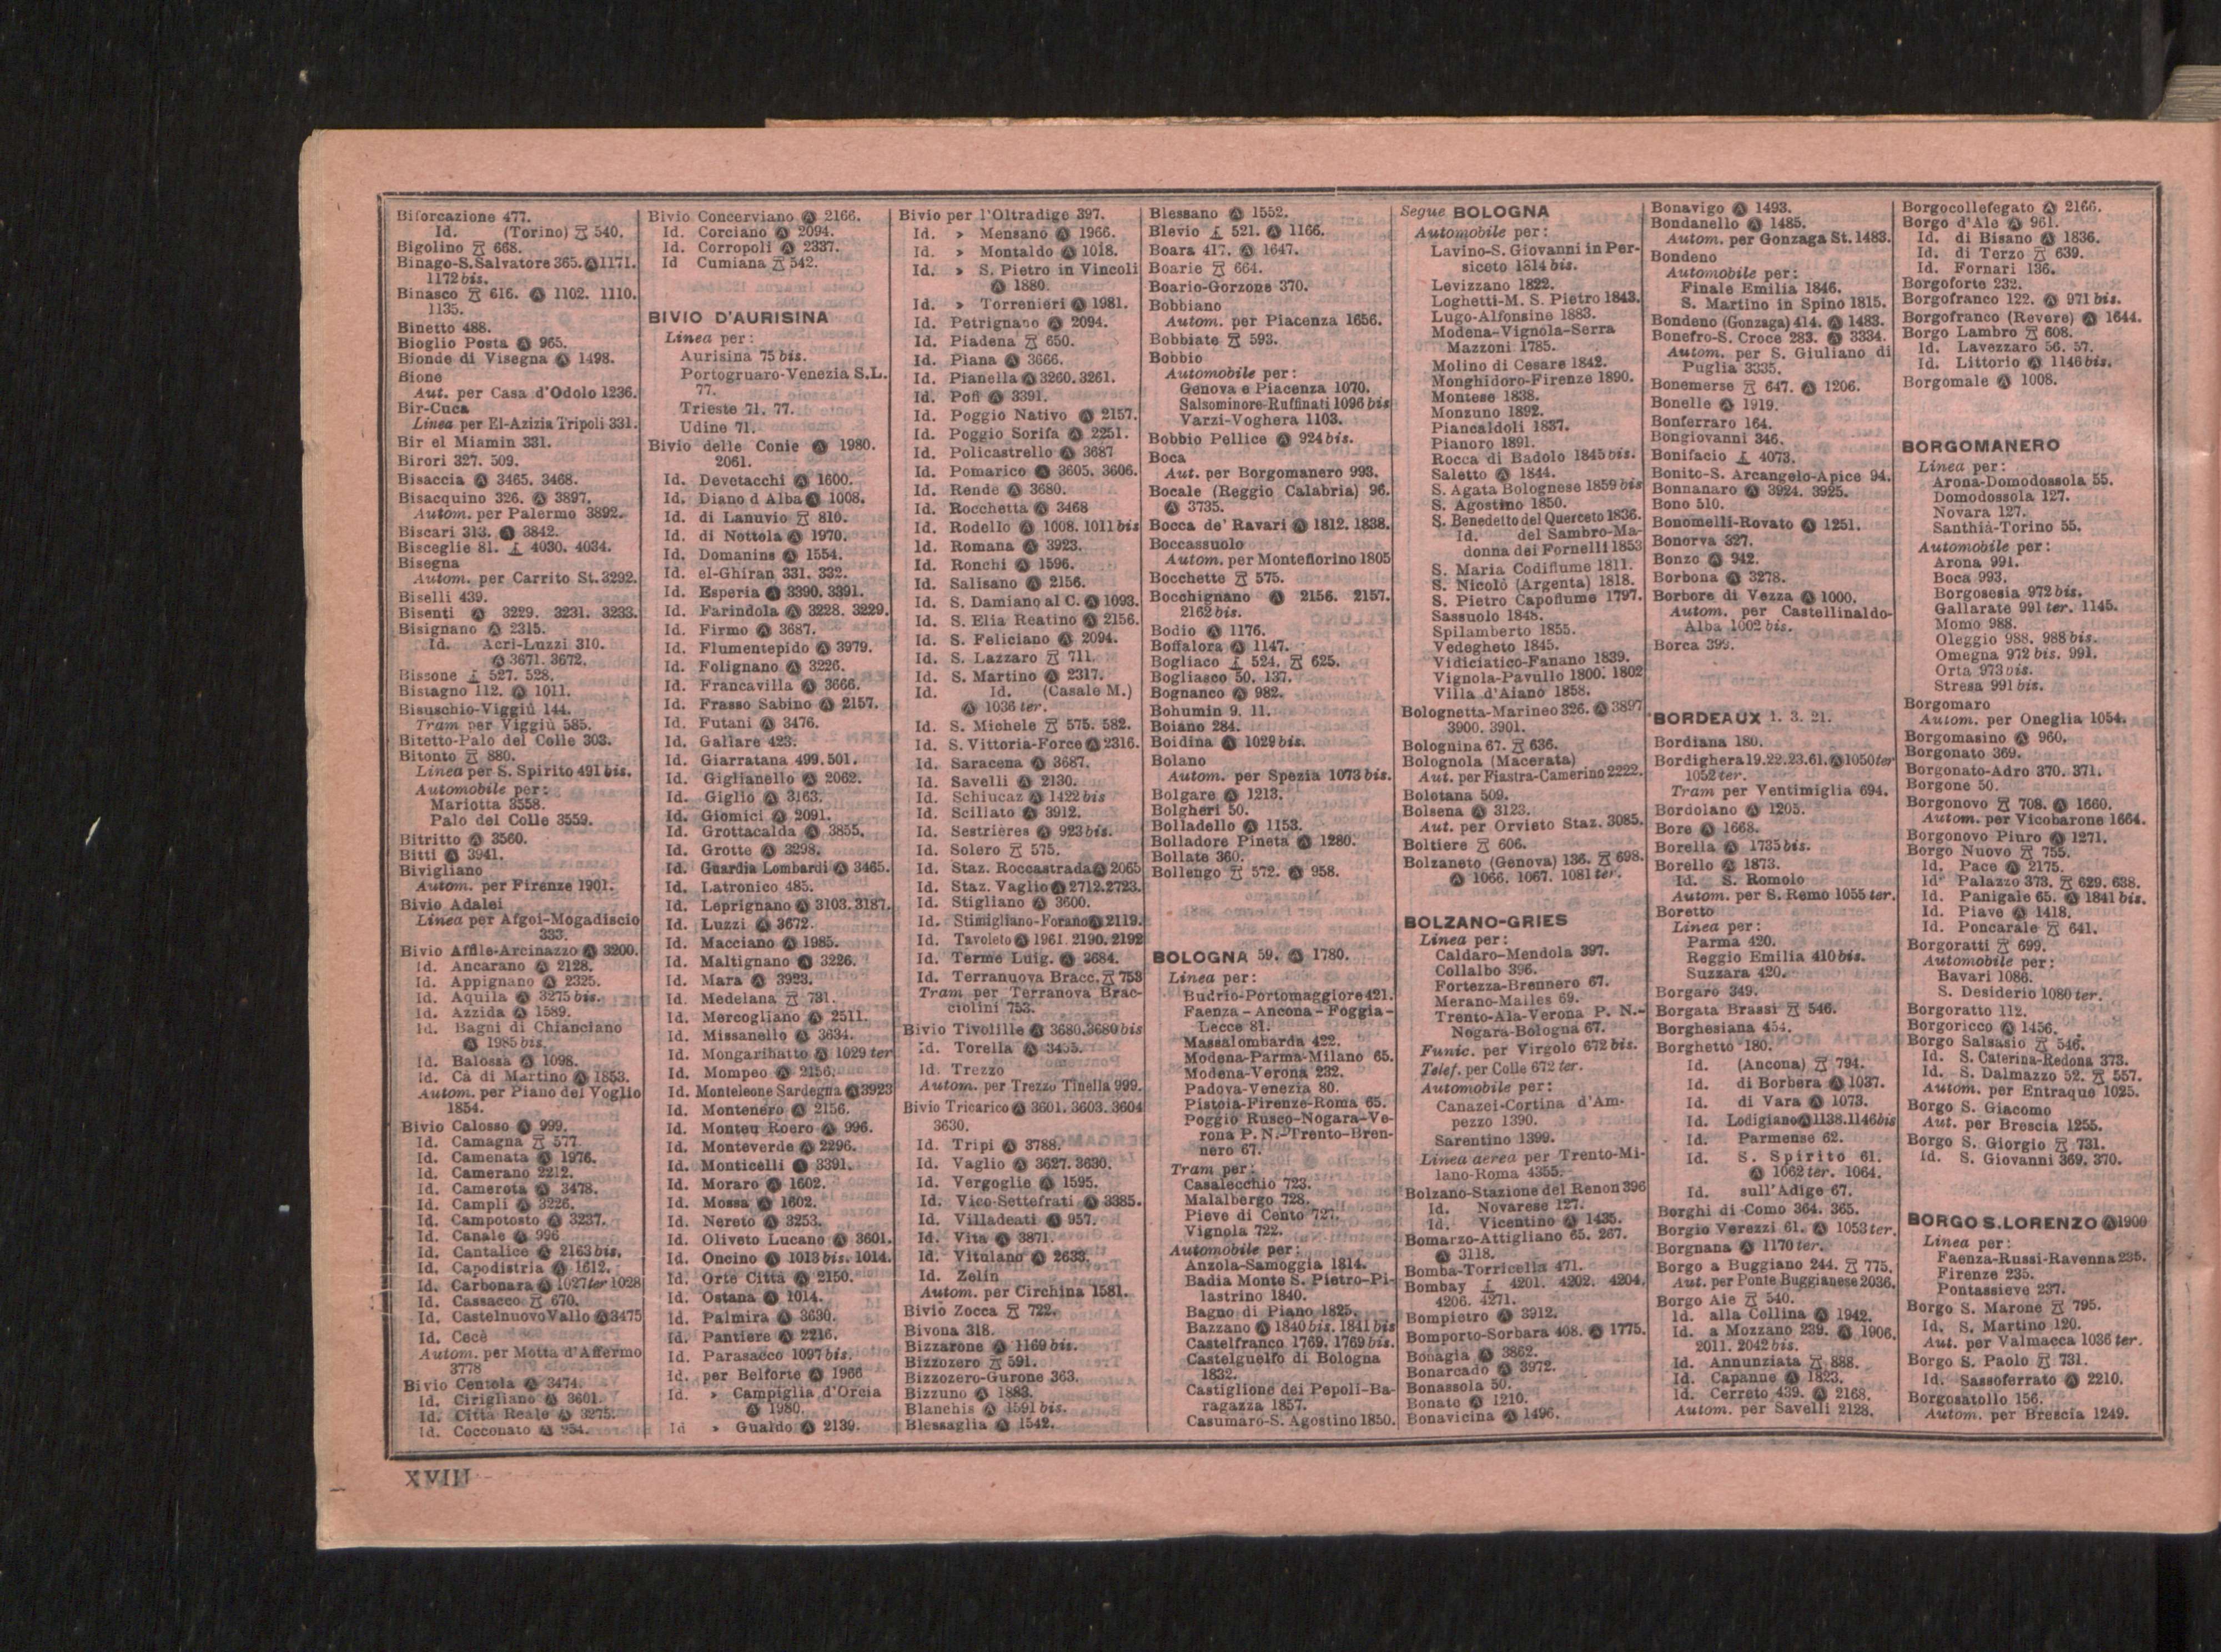 Biforcazione 477.
Id. (Torino) 540.
Bigolino 668.
Binago-S. Salvatore 365. Ⓐ 1171.
1172 bis.
Binasco 616. Ⓐ 1102. 1110.
1135.
Binetto 488.
Bioglio Posta Ⓐ 965.
Bionde di Visegna Ⓐ 1498.
Bione
Aut. per Casa d'Odolo 1236.
Bir-Cuca
Linea per El-Azizia Tripoli 331.
Bir el Miamin 331.
Birori 327. 509.
Bisaccia Ⓐ 3465. 3468.
Bisacquino 326. Ⓐ 3897.
Autom. per Palermo 3892.
Biscari 313. Ⓐ 3842.
Bisceglie 81. 4030. 4034.
Bisegna
Autom. per Carrito St. 3292.
Biselli 439.
Bisenti Ⓐ 3229. 3231. 3233.
Bisignano Ⓐ 2315.
Id. Acri-Luzzi 310.
Ⓐ 3671. 3672.
Bissone 527. 528.
Bistagno 112. Ⓐ 1011.
Bisuschio-Viggiù 144.
Tram per Viggiù 585.
Bitetto-Palo del Colle 303.
Bitonto 880.
Linea per S. Spirito 491 bis.
Automobile per:
Mariotta 3558.
Palo del Colle 3559.
Bitritto Ⓐ 3560.
Bitti Ⓐ 3941.
Bivigliano
Autom. per Firenze 1901.
Bivio Adalei
Linea per Afgoi-Mogadiscio
333.
Bivio Affile-Arcinazzo Ⓐ 3200.
Id. Ancarano Ⓐ 2128.
Id. Appignano Ⓐ 2325.
Id. Aquila Ⓐ 3275 bis.
Id. Azzida Ⓐ 1589.
Id. Bagni di Chianciano
Ⓐ 1985 bis.
Id. Balossa Ⓐ 1098.
Id. Cà di Martino Ⓐ 1853.
Autom. per Piano del Voglio
1854.
Bivio Calosso Ⓐ 999.
Id. Camagna 577
Id. Camenata Ⓐ 1976.
Id. Camerano 2212.
Id. Camerota Ⓐ 3478.
Id. Campli Ⓐ 3226.
Id. Campotosto Ⓐ 3237.
Id. Canale Ⓐ 996
Id. Cantalice Ⓐ 2163 bis.
Id. Capodistria Ⓐ 1612.
Id. Carbonara Ⓐ 1027 ter 1028
Id. Cassacco 670.
Id. Castelnuovo Vallo Ⓐ 3475
Id. Cecè
Autom. per Motta d'Affermo
3778
Bivio Centola Ⓐ 3474.
Id. Cirigliano Ⓐ 3601.
Id. Città Reale Ⓐ 3275.
Id. Cocconato Ⓐ 954.
Bivio Concerviano Ⓐ 2166.
Id. Corciano Ⓐ 2094.
Id. Corropoli Ⓐ 2337.
Id Cumiana 542.
BIVIO D'AURISINA
Linea per:
Aurisina 75 bis.
Portogruaro-Venezia S.L.
77.
Trieste 71. 77.
Udine 71.
Bivio delle Conie Ⓐ 1980.
2061.
Id. Devetacchi Ⓐ 1600.
Id. Diano d Alba Ⓐ 1008.
Id. di Lanuvio 810.
Id. di Nottola Ⓐ 1970.
Id. Domanins Ⓐ 1554.
Id. el-Ghiran 331. 332.
Id. Esperia Ⓐ 3390. 3391.
Id. Farindola Ⓐ 3228. 3229.
Id. Firmo Ⓐ 3687.
Id. Flumentepido Ⓐ 3979.
Id. Folignano Ⓐ 3226.
Id. Francavilla Ⓐ 3666.
Id. Frasso Sabino Ⓐ 2157.
Id. Futani Ⓐ 3476.
Id. Gallare 423.
Id. Giarratana 499. 501.
Id. Giglianello Ⓐ 2062.
Id. Giglio Ⓐ 3163.
Id. Giomici Ⓐ 2091.
Id. Grottacalda Ⓐ 3855.
Id. Grotte Ⓐ 3298.
Id. Guardia Lombardi Ⓐ 3465.
Id. Latronico 485.
Id. Leprignano Ⓐ 3103. 3187.
Id. Luzzi Ⓐ 3672.
Id. Macciano Ⓐ 1985.
Id. Maltignano Ⓐ 3226.
Id. Mara Ⓐ 3923.
Id. Medelana 731.
Id. Mercogliano Ⓐ 2511.
Id. Missanello Ⓐ 3634.
Id. Mongaribatto Ⓐ 1029 ter
Id. Mompeo Ⓐ 2156.
Id. Monteleone Sardegna Ⓐ 3923
Id. Montenero Ⓐ 2156.
Id. Monteu Roero Ⓐ 996.
Id. Monteverde Ⓐ 2296.
Id. Monticelli Ⓐ 3391.
Id. Moraro Ⓐ 1602.
Id. Mossa Ⓐ 1602.
Id. Nereto Ⓐ 3253.
Id. Oliveto Lucano Ⓐ 3601.
Id. Oncino Ⓐ 1013 bis. 1014.
Id. Orte Città Ⓐ 2150.
Id. Ostana Ⓐ 1014.
Id. Palmira Ⓐ 3630.
Id. Pantiere Ⓐ 2216.
Id. Parasacco 1097 bis.
Id. per Belforte Ⓐ 1966
Id. » Campiglia d'Orcia
Ⓐ 1980.
Id » Gualdo Ⓐ 2139.
Bivio per l'Oltradige 397.
Id. » Mensano Ⓐ 1966.
Id. » Montaldo Ⓐ 1018.
Id. » S. Pietro in Vincoli
Ⓐ 1880.
Id. » Torrenieri Ⓐ 1981.
Id. Petrignano Ⓐ 2094.
Id. Piadena 650.
Id. Piana Ⓐ 3666.
Id. Pianella Ⓐ 3260. 3261.
Id. Pofi Ⓐ 3391.
Id. Poggio Nativo Ⓐ 2157.
Id. Poggio Sorifa Ⓐ 2251.
Id. Policastrello Ⓐ 3687
Id. Pomarico Ⓐ 3605. 3606.
Id. Rende Ⓐ 3680.
Id. Rocchetta Ⓐ 3468
Id. Rodello Ⓐ 1008. 1011 bis
Id. Romana Ⓐ 3923.
Id. Ronchi Ⓐ 1596.
Id. Salisano Ⓐ 2156.
Id. S. Damiano al C. Ⓐ 1093.
Id. S. Elia Reatino Ⓐ 2156.
Id. S. Feliciano Ⓐ 2094.
Id. S. Lazzaro 711.
Id. S. Martino Ⓐ 2317.
Id. Id. (Casale M.)
Ⓐ 1036 ter.
Id. S. Michele 575. 582.
Id. S. Vittoria-Force Ⓐ 2316.
Id. Saracena Ⓐ 3687.
Id. Savelli Ⓐ 2130.
Id. Schiucaz Ⓐ 1422 bis
Id. Scillato Ⓐ 3912.
Id. Sestrières Ⓐ 923 bis.
Id. Solero 575.
Id. Staz. Roccastrada Ⓐ 2065
Id. Staz. Vaglio Ⓐ 2712. 2723.
Id. Stigliano Ⓐ 3600.
Id. Stimigliano-Forano Ⓐ 2119.
Id. Tavoleto Ⓐ 1961. 2190. 2192
Id. Terme Luig. Ⓐ 3684.
Id. Terranuova Bracc. 753
Tram per Terranova Brac-
ciolini 753.
Bivio Tivolille Ⓐ 3680. 3680 bis
Id. Torella Ⓐ 3455.
Id. Trezzo
Autom. per Trezzo Tinella 999.
Bivio Tricarico Ⓐ 3601. 3603. 3604
3630.
Id. Tripi Ⓐ 3788.
Id. Vaglio Ⓐ 3627. 3630.
Id. Vergoglie Ⓐ 1595.
Id. Vico-Settefrati Ⓐ 3385.
Id. Villadeati Ⓐ 957.
Id. Vita Ⓐ 3871.
Id. Vitulano Ⓐ 2633.
Id. Zelin
Autom. per Circhina 1581.
Bivio Zocca 722.
Bivona 318.
Bizzarone Ⓐ 1169 bis.
Bizzozero 591.
Bizzozero-Gurone 363.
Bizzuno Ⓐ 1883.
Blanchis Ⓐ 1591 bis.
Blessaglia Ⓐ 1542.
Blessano Ⓐ 1552.
Blevio 521. Ⓐ 1166.
Boara 417. Ⓐ 1647.
Boarie 664.
Boario-Gorzone 370.
Bobbiano
Autom. per Piacenza 1656.
Bobbiate 593.
Bobbio
Automobile per:
Genova e Piacenza 1070.
Salsominore-Ruffinati 1096 bis
Varzi-Voghera 1103.
Bobbio Pellice Ⓐ 924 bis.
Boca
Aut. per Borgomanero 993.
Bocale (Reggio Calabria) 96.
Ⓐ 3735.
Bocca de' Ravari Ⓐ 1812. 1838.
Boccassuolo
Autom. per Montefiorino 1805
Bocchette 575.
Bocchignano Ⓐ 2156. 2157.
2162 bis.
Bodio Ⓐ 1176.
Boffalora Ⓐ 1147.
Bogliaco 524. 625.
Bogliasco 50. 137.
Bognanco Ⓐ 982.
Bohumin 9. 11.
Boiano 284.
Boidina Ⓐ 1029 bis.
Bolano
Autom. per Spezia 1073 bis.
Bolgare Ⓐ 1213.
Bolgheri 50.
Bolladello Ⓐ 1153.
Bolladore Pineta Ⓐ 1280.
Bollate 360.
Bollengo 572. Ⓐ 958.
BOLOGNA 59. Ⓐ 1780.
Linea per:
Budrio-Portomaggiore 421.
Faenza-Ancona-Foggia-
Lecce 81.
Massalombarda 422.
Modena-Parma-Milano 65.
Modena-Verona 232.
Padova-Venezia 80.
Pistoia-Firenze-Roma 65.
Poggio Rusco-Nogara-Ve-
rona P. N.-Trento-Bren-
nero 67.
Tram per:
Casalecchio 723.
Malalbergo 728.
Pieve di Cento 727.
Vignola 722.
Automobile per:
Anzola-Samoggia 1814.
Badia Monte S. Pietro-Pi-
lastrino 1840.
Bagno di Piano 1825.
Bazzano Ⓐ 1840 bis. 1841 bis
Castelfranco 1769. 1769 bis.
Castelguelfo di Bologna
1832.
Castiglione dei Pepoli-Ba-
ragazza 1857.
Casumaro-S. Agostino 1850.
Segue BOLOGNA
Automobile per:
Lavino-S. Giovanni in Per-
siceto 1814 bis.
Levizzano 1822.
Loghetti-M. S. Pietro 1843.
Lugo-Alfonsine 1883.
Modena-Vignola-Serra
Mazzoni 1785.
Molino di Cesare 1842.
Monghidoro-Firenze 1890.
Montese 1838.
Monzuno 1892.
Piancaldoli 1837.
Pianoro 1891.
Rocca di Badolo 1845 bis.
Saletto Ⓐ 1844.
S. Agata Bolognese 1859 bis
S. Agostino 1850.
S. Benedetto del Querceto 1836.
Id. del Sambro-Ma-
donna dei Fornelli 1853
S. Maria Codifiume 1811.
S. Nicolò (Argenta) 1818.
S. Pietro Capofiume 1797.
Sassuolo 1848.
Spilamberto 1855.
Vedegheto 1845.
Vidiciatico-Fanano 1839.
Vignola-Pavullo 1800. 1802
Villa d'Aiano 1858.
Bolognetta-Marineo 326. Ⓐ 3897
3900. 3901.
Bolognina 67. 636.
Bolognola (Macerata)
Aut. per Fiastra-Camerino 2222.
Bolotana 509.
Bolsena Ⓐ 3123.
Aut. per Orvieto Staz. 3085.
Boltiere 606.
Bolzaneto (Genova) 136. 698.
Ⓐ 1066. 1067. 1081 ter.
BOLZANO-GRIES
Linea per:
Caldaro-Mendola 397.
Collalbo 396.
Fortezza-Brennero 67.
Merano-Malles 69.
Trento-Ala-Verona P. N.-
Nogara-Bologna 67.
Funic. per Virgolo 672 bis.
Telef. per Colle 672 ter.
Automobile per:
Canazei-Cortina d'Am-
pezzo 1390.
Sarentino 1399.
Linea aerea per Trento-Mi-
lano-Roma 4355.
Bolzano-Stazione del Renon 396
Id. Novarese 127.
Id. Vicentino Ⓐ 1435.
Bomarzo-Attigliano 65. 267.
Ⓐ 3118.
Bomba-Torricella 471.
Bombay 4201. 4202. 4204.
4206. 4271.
Bompietro Ⓐ 3912.
Bomporto-Sorbara 408. Ⓐ 1775.
Bonagia Ⓐ 3862.
Bonarcado Ⓐ 3972.
Bonassola 50.
Bonate Ⓐ 1210.
Bonavicina Ⓐ 1496.
Bonavigo Ⓐ 1493.
Bondanello Ⓐ 1485.
Autom. per Gonzaga St. 1483.
Bondeno
Automobile per:
Finale Emilia 1846.
S. Martino in Spino 1815.
Bondeno (Gonzaga) 414. Ⓐ 1483.
Bonefro-S. Croce 283. Ⓐ 3334.
Autom. per S. Giuliano di
Puglia 3335.
Bonemerse 647. Ⓐ 1206.
Bonelle Ⓐ 1919.
Bonferraro 164.
Bongiovanni 346.
Bonifacio 4073.
Bonito-S. Arcangelo-Apice 94.
Bonnanaro Ⓐ 3924. 3925.
Bono 510.
Bonomelli-Rovato Ⓐ 1251.
Bonorva 327.
Bonzo Ⓐ 942.
Borbona Ⓐ 3278.
Borbore di Vezza Ⓐ 1000.
Autom. per Castellinaldo-
Alba 1002 bis.
Borca 399.
BORDEAUX 1. 3. 21.
Bordiana 180.
Bordighera 19. 22. 23. 61. Ⓐ 1050 ter
1052 ter.
Tram per Ventimiglia 694.
Bordolano Ⓐ 1205.
Bore Ⓐ 1668.
Borella Ⓐ 1735 bis.
Borello Ⓐ 1873.
Id. S. Romolo
Autom. per S. Remo 1055 ter.
Boretto
Linea per:
Parma 420.
Reggio Emilia 410 bis.
Suzzara 420.
Borgaro 349.
Borgata Brassi 546.
Borghesiana 454.
Borghetto 180.
Id. (Ancona) 794.
Id. di Borbera Ⓐ 1037.
Id. di Vara Ⓐ 1073.
Id. Lodigiano Ⓐ 1138. 1146 bis
Id. Parmense 62.
Id. S. Spirito 61.
Ⓐ 1062 ter. 1064.
Id. sull'Adige 67.
Borghi di Como 364. 365.
Borgio Verezzi 61. Ⓐ 1053 ter.
Borgnana Ⓐ 1170 ter.
Borgo a Buggiano 244. 775.
Aut. per Ponte Buggianese 2036.
Borgo Aie 540.
Id. alla Collina Ⓐ 1942.
Id. a Mozzano 239. Ⓐ 1906.
2011. 2042 bis.
Id. Annunziata 888.
Id. Capanne Ⓐ 1823.
Id. Cerreto 439. Ⓐ 2168.
Autom. per Savelli 2128.
Borgocollefegato Ⓐ 2166.
Borgo d'Ale Ⓐ 961.
Id. di Bisano Ⓐ 1836.
Id. di Terzo 639.
Id. Fornari 136.
Borgoforte 232.
Borgofranco 122. Ⓐ 971 bis.
Borgofranco (Revere) Ⓐ 1644.
Borgo Lambro 608.
Id. Lavezzaro 56. 57.
Id. Littorio Ⓐ 1146 bis.
Borgomale Ⓐ 1008.
BORGOMANERO
Linea per:
Arona-Domodossola 55.
Domodossola 127.
Novara 127.
Santhià-Torino 55.
Automobile per:
Arona 991.
Boca 993.
Borgosesia 972 bis.
Gallarate 991 ter. 1145.
Momo 988.
Oleggio 988. 988 bis.
Omegna 972 bis. 991.
Orta 973 bis.
Stresa 991 bis.
Borgomaro
Autom. per Oneglia 1054.
Borgomasino Ⓐ 960.
Borgonato 369.
Borgonato-Adro 370. 371.
Borgone 50.
Borgonovo 708. Ⓐ 1660.
Autom. per Vicobarone 1664.
Borgonovo Piuro Ⓐ 1271.
Borgo Nuovo 755.
Id. Pace Ⓐ 2175.
Id Palazzo 373. 629. 638.
Id. Panigale 65. Ⓐ 1841 bis.
Id. Piave Ⓐ 1418.
Id. Poncarale 641.
Borgoratti 699.
Automobile per:
Bavari 1086.
S. Desiderio 1080 ter.
Borgoratto 112.
Borgoricco Ⓐ 1456.
Borgo Salsasio 546.
Id. S. Caterina-Redona 373.
Id. S. Dalmazzo 52. 557.
Autom. per Entraque 1025.
Borgo S. Giacomo
Aut. per Brescia 1255.
Borgo S. Giorgio 731.
Id. S. Giovanni 369. 370.
BORGO S. LORENZO Ⓐ 1900
Linea per:
Faenza-Russi-Ravenna 235.
Firenze 235.
Pontassieve 237.
Borgo S. Marone 795.
Id. S. Martino 120.
Aut. per Valmacca 1036 ter.
Borgo S. Paolo 731.
Id. Sassoferrato Ⓐ 2210.
Borgosatollo 156.
Autom. per Brescia 1249.
XVIII